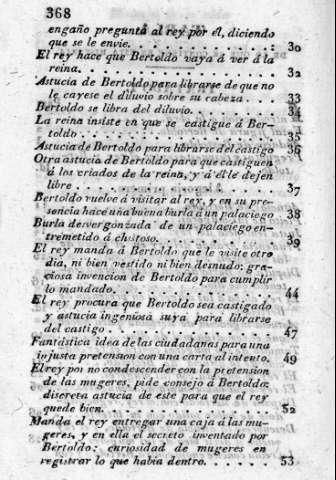 368
engaño pregunta al rey por él, diciendo
que se le envie. . . . . . . . . . . . : 30
El rey hace que Bertoldo vaya á ver á la
reina. . . . . . . . . . . . . . . . . 32
Astucia de Bertoldo para librarse de que no
le cayese el diluvio sobre su cabeza . . . . 33
Bertoldo se libra del diluvio. . . . . . . 34
La reina insiste en que se castigue á Ber-
toldo . . . . . . . . . . . . . . . . . 35
Astucia de Bertoldo para librarse del castigo 36
Otra astucia de Bertoldo para que castiguen
á los criados de la reina, y á él le dejen
libre . . . . . . . . . . . . . . . . . 37
Bertoldo vuelve á visitar al rey, y en su pre-
sencia hace una buena burla á un palaciego 38
Burla desvergonzada de un palaciego en-
tremetido á chistoso. . . . . . . . . . . 39
El rey manda á Bertoldo que le visite otro
dia, ni bien vestido ni bien desnudo; gra-
ciosa invencion de Bertoldo para cumplir
lo mandado. . . . . . . . . . . . . . . 44
El rey procura que Bertoldo sea castigado
y astucia ingeniosa suya para librarse
del castigo . . . . . . . . . . . . . . . 47
Fantástica idea de las ciudadanas para una
injusta pretension con una carta al intento. 49
El rey por no condescender con la pretension
de las mugeres, pide consejo á Bertoldo;
discreta astucia de este para que el rey
quede bien. . . . . . . . . . . . . . . 52
Manda el rey entregar una caja á las mu-
geres, y en ella el secreto inventado por
Bertoldo; curiosidad de mugeres en
registrar lo que habia dentro. . . . . . . 53